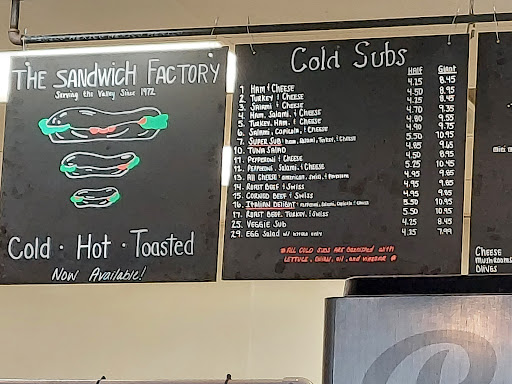 THE SANDWICH FACTORY
Serving the Valley Since 1972
Cold · Hot · Toasted
Now Available!
Cold Subs
HALF Giant
1 HAM & CHEESE 4.25 8.45
2 Turkey & Cheese 4.50 8.95
3 Salami & Cheese 4.25 8.45
4 Ham, Salami, & Cheese 4.70 9.35
5 Turkey, Ham, & Cheese 4.80 9.55
6 Salami, Capicola, & Cheese 4.90 9.75
7 Super Sub 5.50 10.95
10 Tuna Salad 4.85 9.65
11 Pepperoni & Cheese 4.50 8.95
12 Pepperoni, Salami, & Cheese 5.25 10.45
13 All Cheese American, Swiss, & Provolone 4.95 9.85
14 Roast Beef & Swiss 4.95 9.85
15 Corned Beef & Swiss 4.95 9.85
16 Italian Delight Pepperoni, Salami, Capicola & Cheese 5.50 10.95
17 Roast Beef, Turkey, & Swiss 5.50 10.95
25 Veggie Sub 4.25 8.45
29 EGG Salad w/ 4.25 7.99
*ALL COLD SUBS ARE GARNISHED with
LETTUCE, ONION, oil, and vinegar *
CHEESE
MUSHROOMS
OLIVES